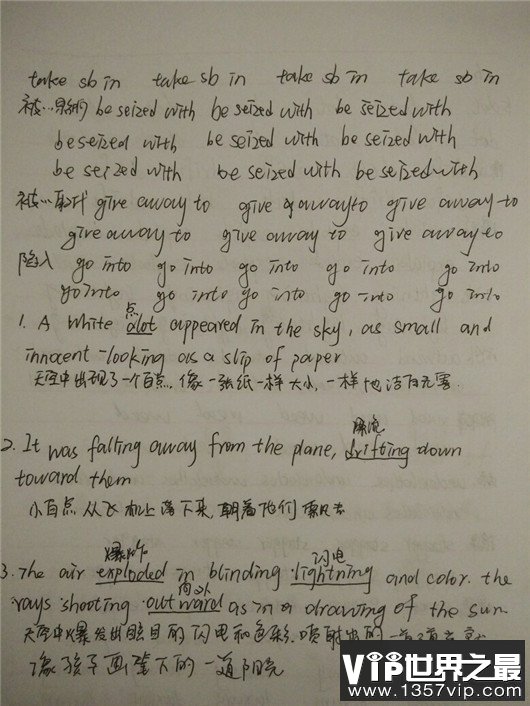 take sb in take sb in take sb in take sb in
be seized with be seized with be seized with
be seized with be seized with be seized with
be seized with be seized with be seized with
被…取代 give away to give away to give away to
give away to give away to give away to
陷入 go into go into go into go into go into
go into go into go into go into go into
点
1. A white dot appeared in the sky, as small and
innocent-looking as a slip of paper
天空中出现了一个白点,像一张纸一样大小,一样地洁白无害.
飘流
2. It was falling away from the plane, drifting down
toward them
小白点从飞机上落下来,朝着他们飘去
爆炸 闪电
3. The air exploded in blinding lightning and color. the
向外
rays shooting outward as in a drawing of the sun
天空中爆发出眩目的闪电和色彩.喷射出的一道道
像孩子画笔下的一道阳光
VIP世界之最
www.1357vip.com